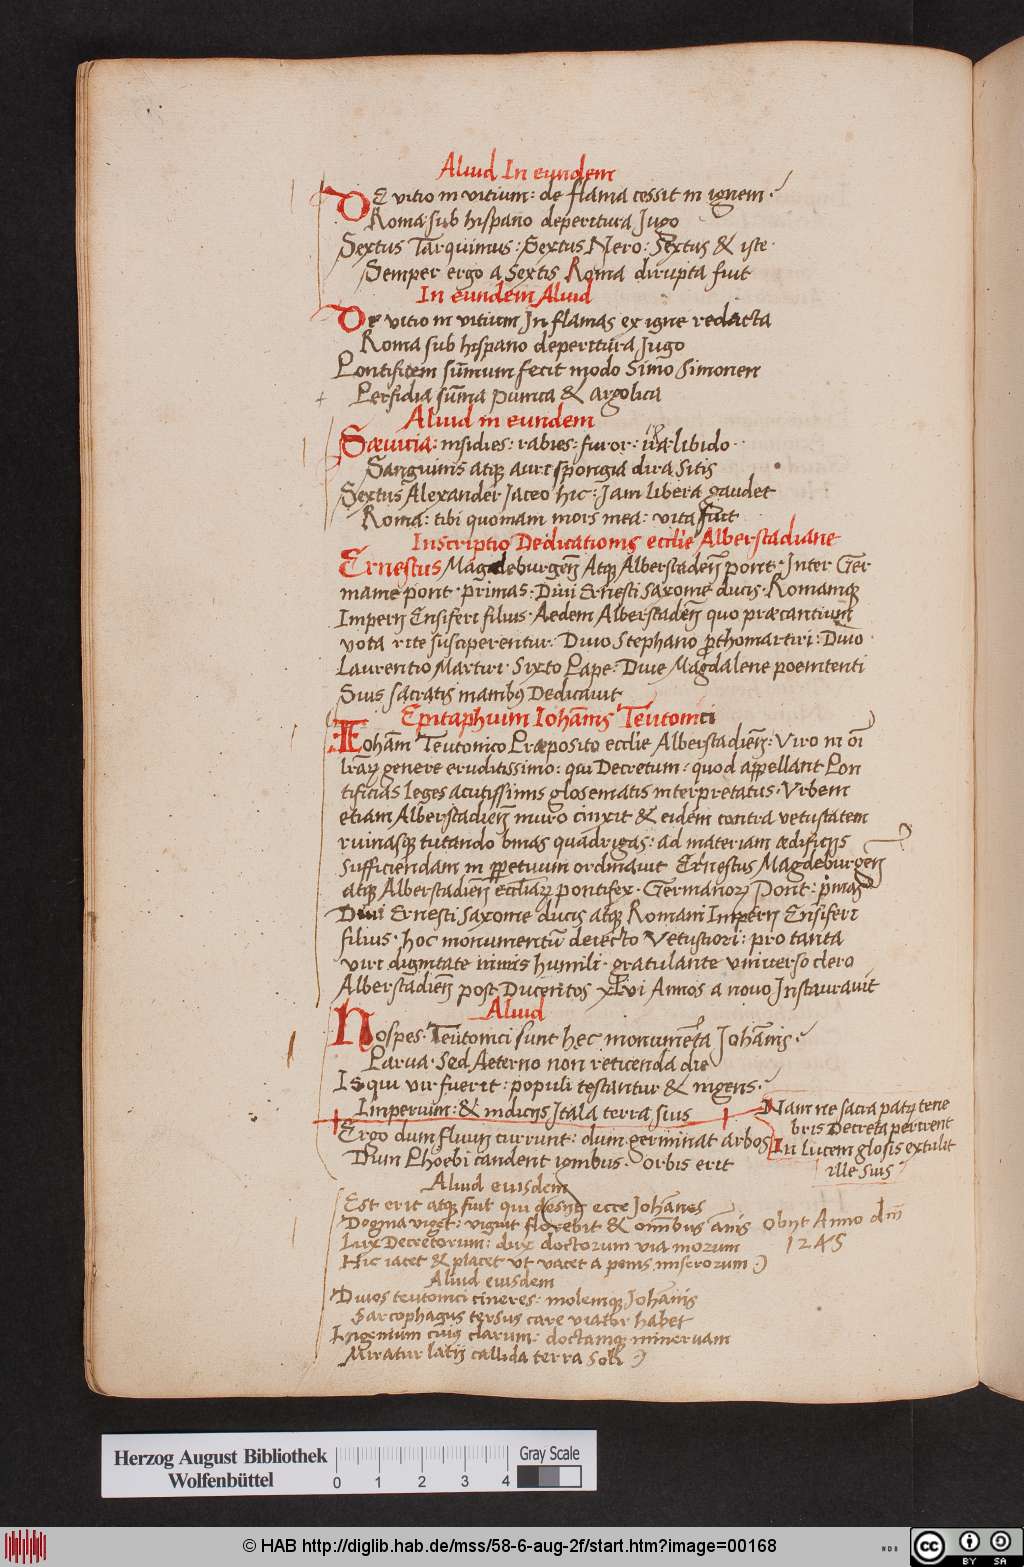 Aliud In eundem
DE vitio in vitium: de flama cessit in ignem.
Roma sub hispano deperitura Jugo
Sextus Tarquinius: Sextus Nero: Sextus & iste.
Semper ergo a Sextis Roma dirupta fuit
In eundem Aliud
De vitio in vitium In flamas ex igne redacta
Roma sub hispano deperitura Jugo
Pontificem sum̄um fecit modo Simo Simonen
Perfidia sum̄a punica & argolica
Aliud in eundem
Sæuicia: insidies: rabies: furor: ira: libido.
Sanguinis atq; auri spongia dira Sitis
Sextus Alexander Jaceo hic: Jam libera gaudet
Roma: tibi quoniam mors mea: vita fuit
Inscriptio Dedicationis ecclie Alberstadiane
Ernestus Magdeburgen̄ Atq; Alberstaden̄ pont. Inter Ger
manie pont. primas. Diui Ernesti Saxonie ducis. Romaniq;
Imperij Ensiferi filius. Aedem Alberstaden̄ quo præcantium̄
vota rite susciperentur. Diuo Stephano prothomartiri: Diuo
Laurentio Martiri. Sixto Pape. Diue Magdalene poenitenti
Suis sacratis manibus Dedicauit
Epitaphium Johan̄is Teutonici
Iohan̄i Teutonico Præposito ecclie Alberstadien̄: Viro in oī
lrar̄ genere eruditissimo: qui Decretum: quod appellant Pon
tificias leges acutissimis glosematis interpretatus. Vrbem
etiam Alberstadien̄ muro cinxit & eidem contra vetustatem
ruinasq; tutando binas quadrigas: ad materiam ædificijs
Sufficiendam in ppetuum ordinauit Ernestus Magdeburgen̄
atq; Alberstadien̄ eccliar̄ pontifex. Germanor̄ Pont. primas
Diui Ernesti Saxonie ducis atq; Romani Imperij Ensiferi
filius. hoc monumentū deiecto Vetustiori: pro tanta
viri dignitate nimis humili. gratulante vniuerso clero
Alberstadien̄ post Ducentos xlvi Annos a nouo Instaurauit
Aliud
Hospes. Teutonici sunt hęc monumēta Johan̄is.
Parua. Sed Aeterno non reticenda die
Is qui vir fuerit: populi testantur & ingens.
Imperium: & indicijs Itala terra suis
Nam ne sacra patrȝ tene
bris Decreta perirent
In Lucem glosis extulit
ille suis
Ergo dum fluuij currunt: dum germinat arbos
Dum Phoebi candent ignibus. Orbis erit
Aliud eiusdem
Est erit atq; fuit qui desijt ecce Johanes
Dogma viget: viguit florebit & omnibus annis
Obijt Anno dnī
1245
Lux Decretorum: dux doctorum via morum
Hic iacet & placet vt vacet a penis miserorum
Aliud eiusdem
Diuos teutonici cineres: molemq; Johan̄is
Sarcophagus tersus care viator habet
Ingenium cuiꝰ clarum: doctamq; mineruam
Miratur latij callida terra Soli
Herzog August Bibliothek
Wolfenbüttel
0 1 2 3 4
Gray Scale
© HAB http://diglib.hab.de/mss/58-6-aug-2f/start.htm?image=00168
cc BY SA